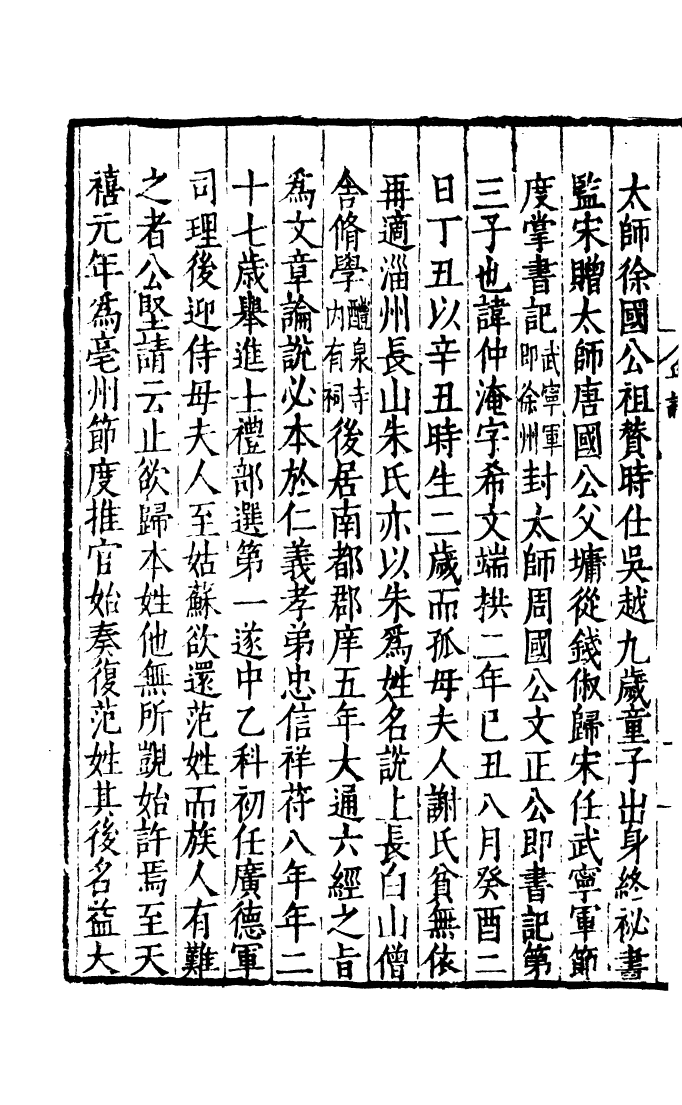 太師徐國公祖贊時仕吳越九歲童子出身終祕書
監宋贈太師唐國公父墉從錢俶歸宋任武寧軍節
度掌書記武寧軍即徐州封太師周國公文正公即書記第
三子也諱仲淹字希文端拱二年已丑八月癸酉二
日丁丑以辛丑時生二歲而孤毋夫人謝氏貧無依
再適淄州長山朱氏亦以朱爲姓名說上長白山僧
舍脩學醴泉寺内有祠後居南都郡庠五年大通六經之旨
爲文章論說必本於仁義孝弟忠信祥符八年年二
十七歲舉進士禮部選第一遂中乙科初任廣德軍
司理後迎侍毋夫人至姑蘇欲還范姓而族人有難
之者公堅請云止欲歸本姓他無所覬始許焉至天
禧元年爲亳州節度推官始奏復范姓其後名益大